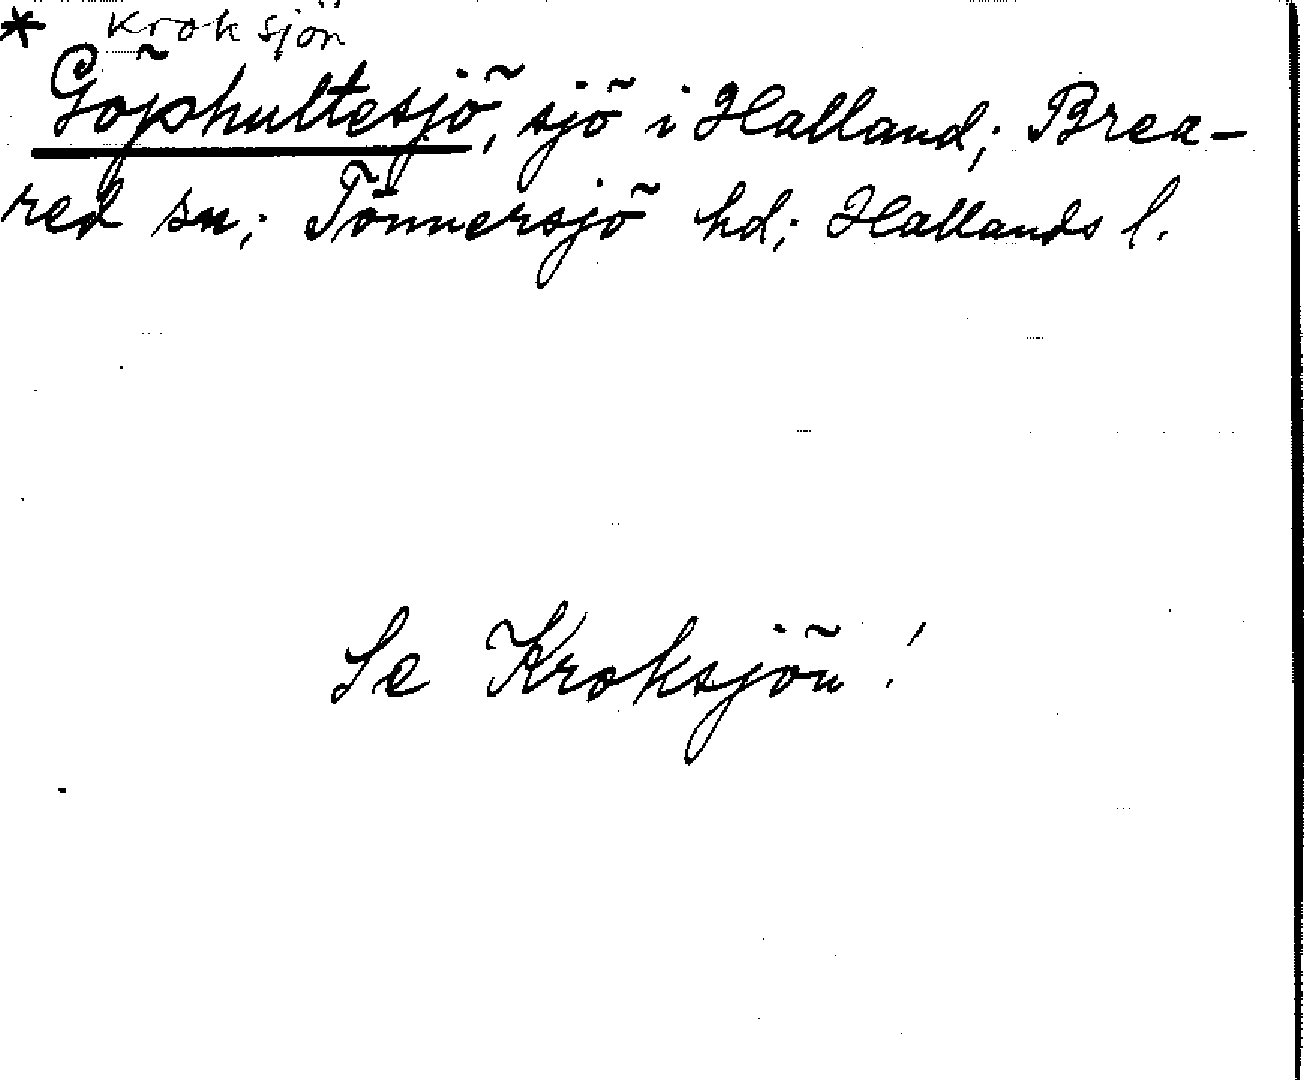 * Kroksjön
Göphultesjö, sjö i Halland; Brea-
red sn; Tönnersjö hd; Hallands l.
Se Kroksjön!